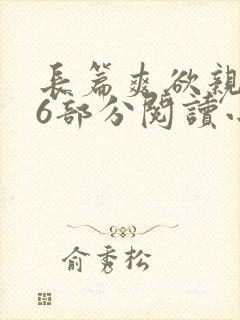 長篇爽欲親
6部分閱讀小
俞秀松